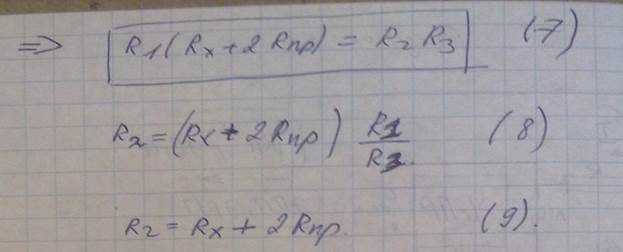 => R1(Rx+2Rпр) = R2 R3 (7)
R2=(Rx+2Rпр) R1/R3 (8)
R2 = Rx + 2Rпр. (9).